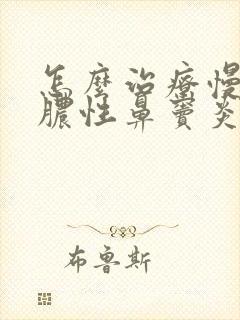 怎麼治療慢
膿性鼻竇炎
布鲁斯